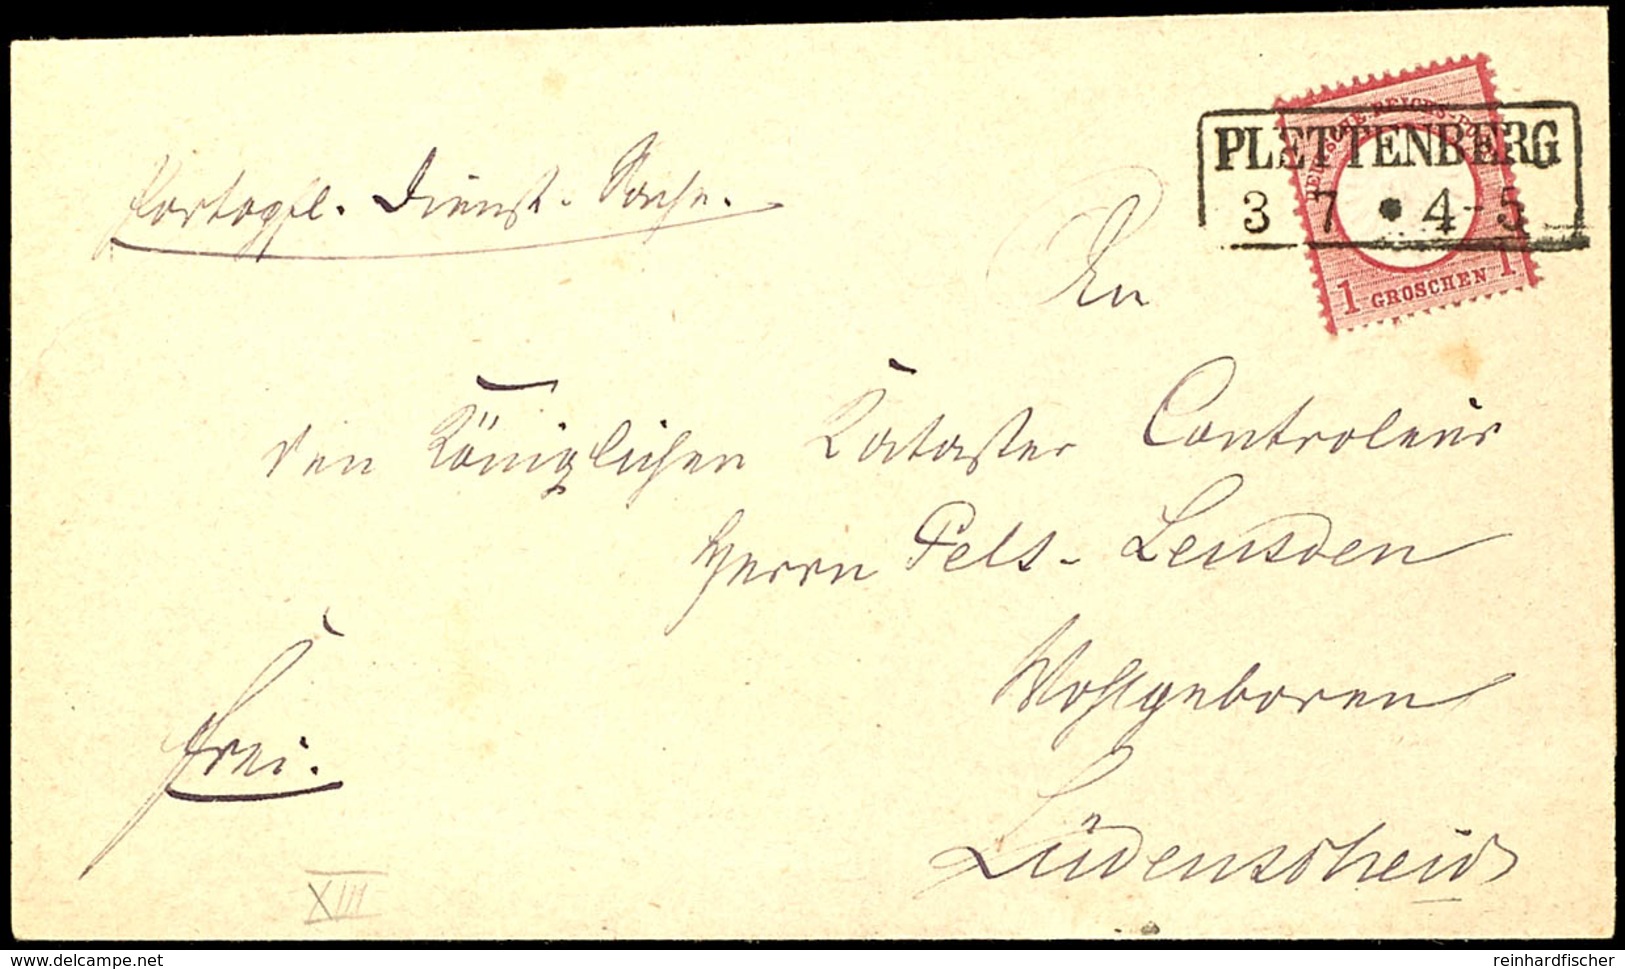 PLETTENBERG
3 7 • 4-5
DEUTSCHE-REICHS-POST
1 GROSCHEN 1
Portopfl. Dienst-Sache.
An
den Königlichen Kataster Controleur
Herrn Pels-Leusden
Wohlgeboren
Lüdenscheid
frei.
XIII
delcampe.net
reinhardfischer